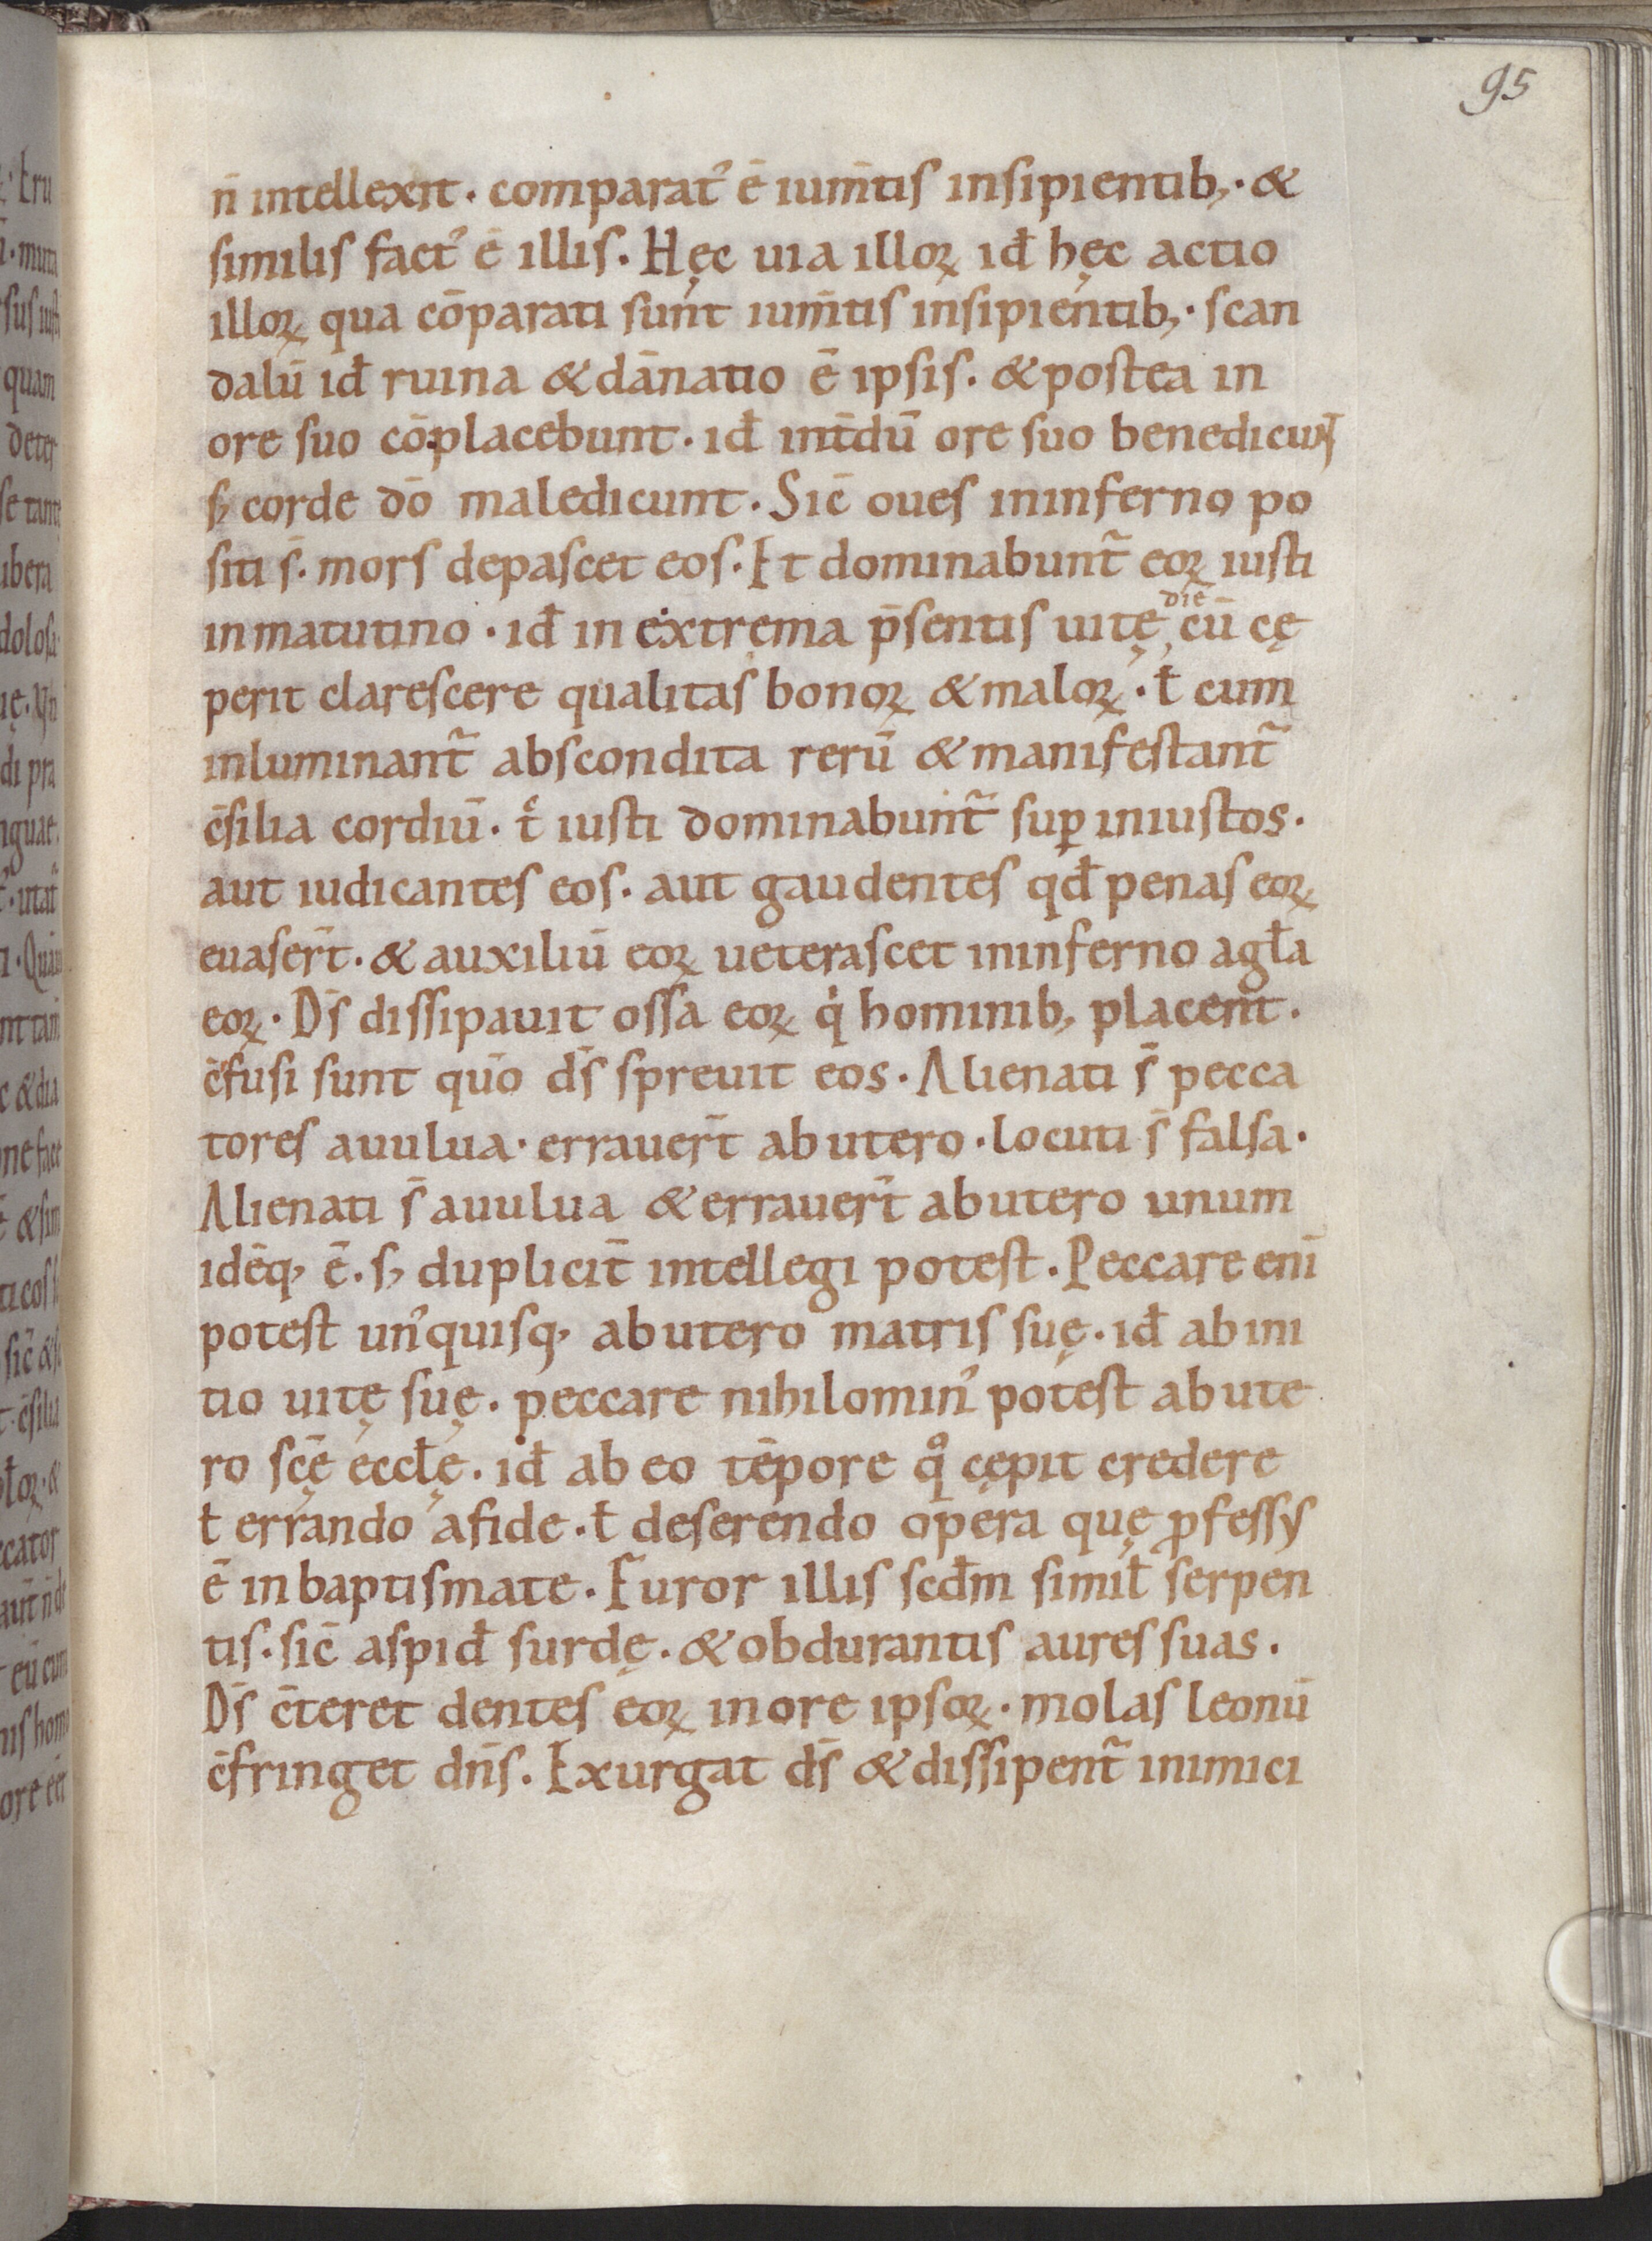 95
n̄ intellexit · comparatꝰ ē ium̄tis insipientib; · &
similis factꝰ ē illis · Hęc uia illoꝝ id̄ hęc actio
illoꝝ qua cōparati sunt ium̄tis insipientib; · scan
dalū id̄ ruina & dānatio ē ipsis · & postea in
ore suo cōplacebunt · id̄ int̄dū ore suo benedicunt
s; corde dō maledicunt · Sic̄ oues ininferno po
siti s̄ · mors depascet eos · Et dominabunt̄ eoꝝ iusti
inmatutino · id̄ in extrema p̄sentis uitę die cū cę
perit clarescere qualitas bonoꝝ & maloꝝ · ł cum
inluminant̄ abscondita rerū & manifestant̄
c̄silia cordiū · t̄c iusti dominabunt̄ suꝑ iniustos ·
aut iudicantes eos · aut gaudentes qd̄ penas eoꝝ
euaser̄t · & auxiliū eoꝝ ueterascet ininferno agl̄a
eoꝝ · Ds̄ dissipauit ossa eoꝝ qͥ hominib; placent ·
c̄fusi sunt quō ds̄ spreuit eos · Alienati s̄ pecca
tores auulua · errauer̄t ab utero · locuti s̄ falsa ·
Alienati s̄ auulua & errauer̄t ab utero unum
idēq; ē · s; duplicit̄ intellegi potest · Peccare enī
potest unꝰquisq; ab utero matris suę · id̄ ab ini
tio uitę suę · peccare nihilominꝰ potest ab ute
ro scę̄ eccl̄ę · id̄ ab eo tēpore qͦ cępit credere
ł errando afide · ł deserendo opera quę ꝓfessꝰ
ē in baptismate · Furor illis scd̄m simił serpen
tis · sic̄ aspid̄ surdę · & obdurantis aures suas ·
Ds̄ c̄teret dentes eoꝝ inore ipsoꝝ · molas leonū
c̄fringet dn̄s · Exurgat ds̄ & dissipent̄ inimici